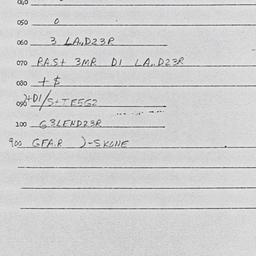 050 0
060 3 LA,,D23R
070 PA.S+ 3MR DI LA,.D23R
080 + $
090 )+DI/S+TE5G2
100 G3LEND23R
900 GFA.R )-SKONE